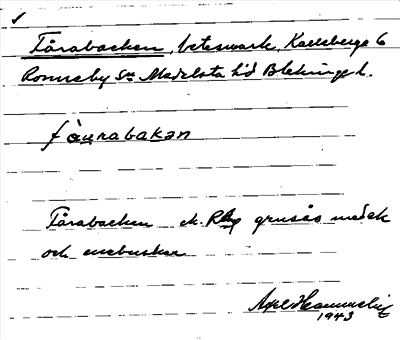 ✓
Fårabacken, betesmark, Karlsberga 6
Ronneby Sn Medelsta hd Blekinge l.
fåurabakan
Fårabacken grusås med ek
och enebuskar
Axel Hammelin
1943